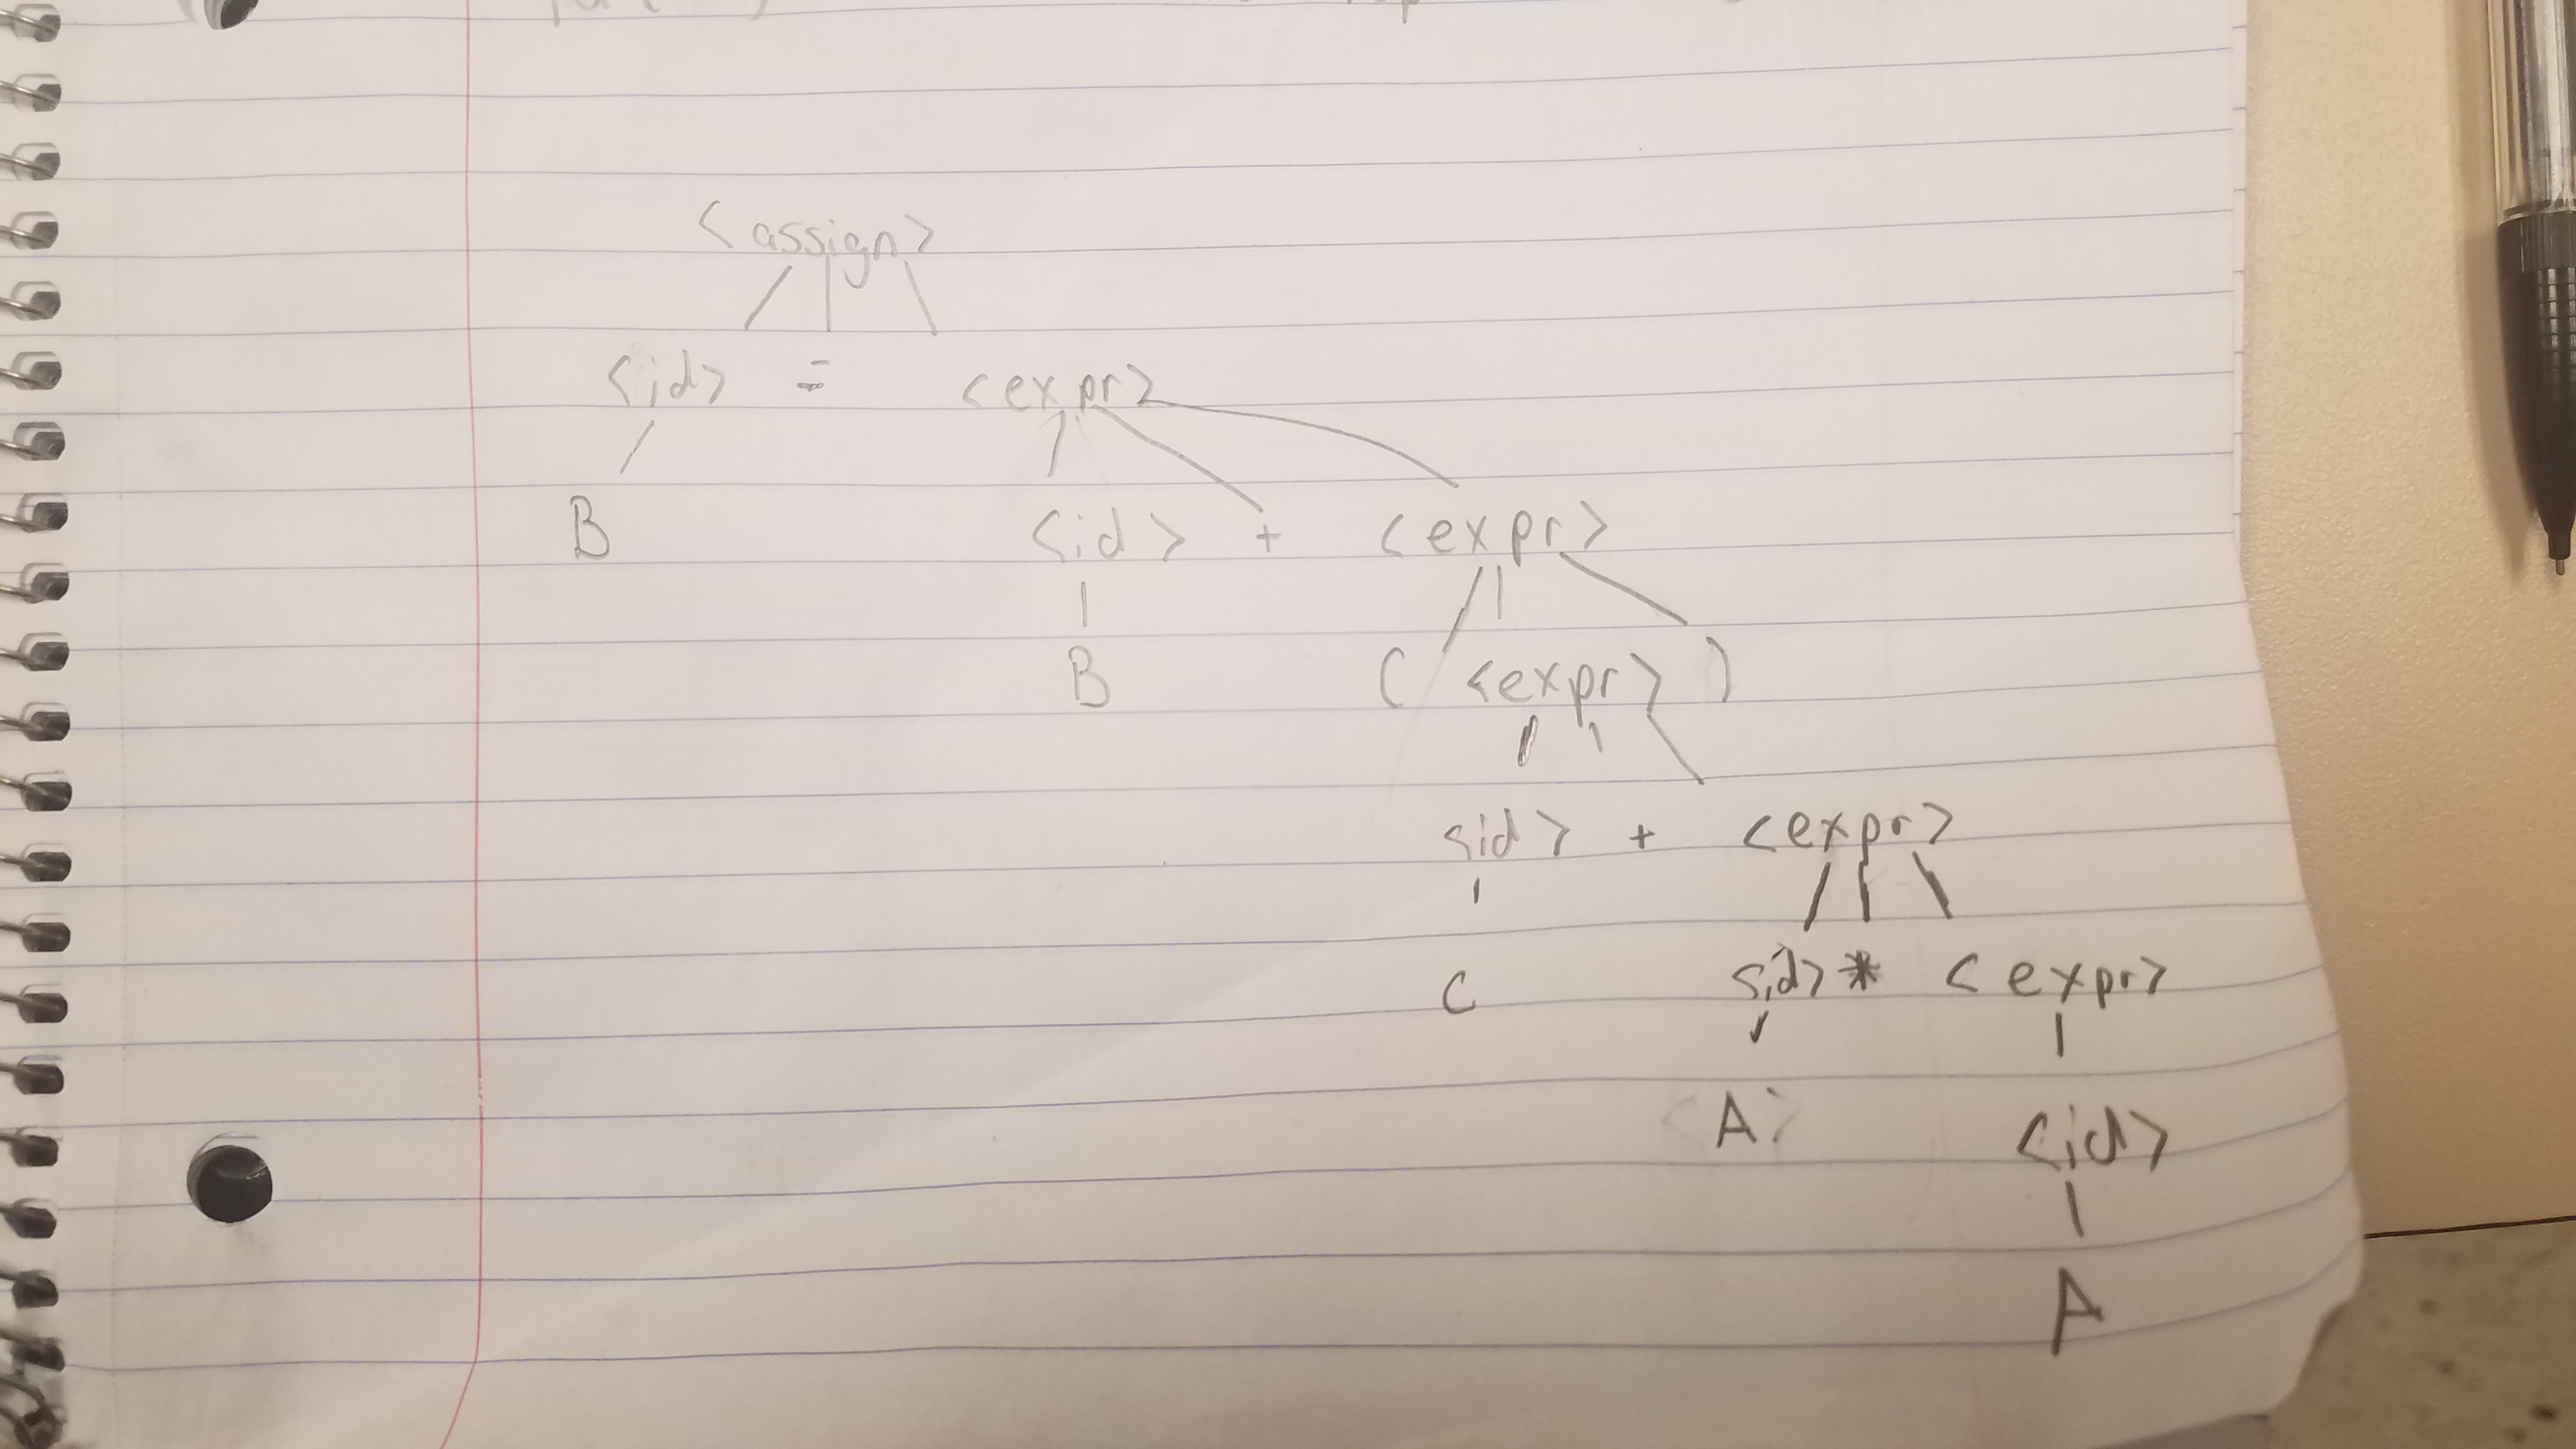 <assign>
<id> = <expr>
B <id> + <expr>
B ( <expr> )
<id> + <expr>
C <id> * <expr>
<A> <id>
A